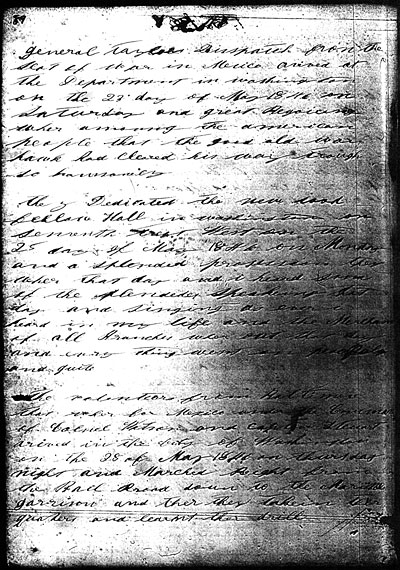 General Taylors Dispatch from the
Seat of war in Mexico arived at
the Department in washing ton
on the 23 day of May 1846 on
Saturday and great Rejoicing
took amoung the american
people that the good old War
hawk had Cleared his way through
so harmonicly
the y Dedicated the new odd
fellows Hall in washington on
Seventh Street West on the
25 day of May 1846 on Monday
and a splended procession
that day and i heard some
of the splendedes Speaking that
day and singing as ever i
heard in my life and the
of all Branches was out that day
and every thing went on
and quite
The volenters from Baltimore
that under
of Colonel Watson and Capt Stuart
arived in the City of Washington
on the 28 of May 1846 on Thursday
night and Marched Straight from
the Rail Road down to the
garrison and ther they taken
quarters and learnt ther drill